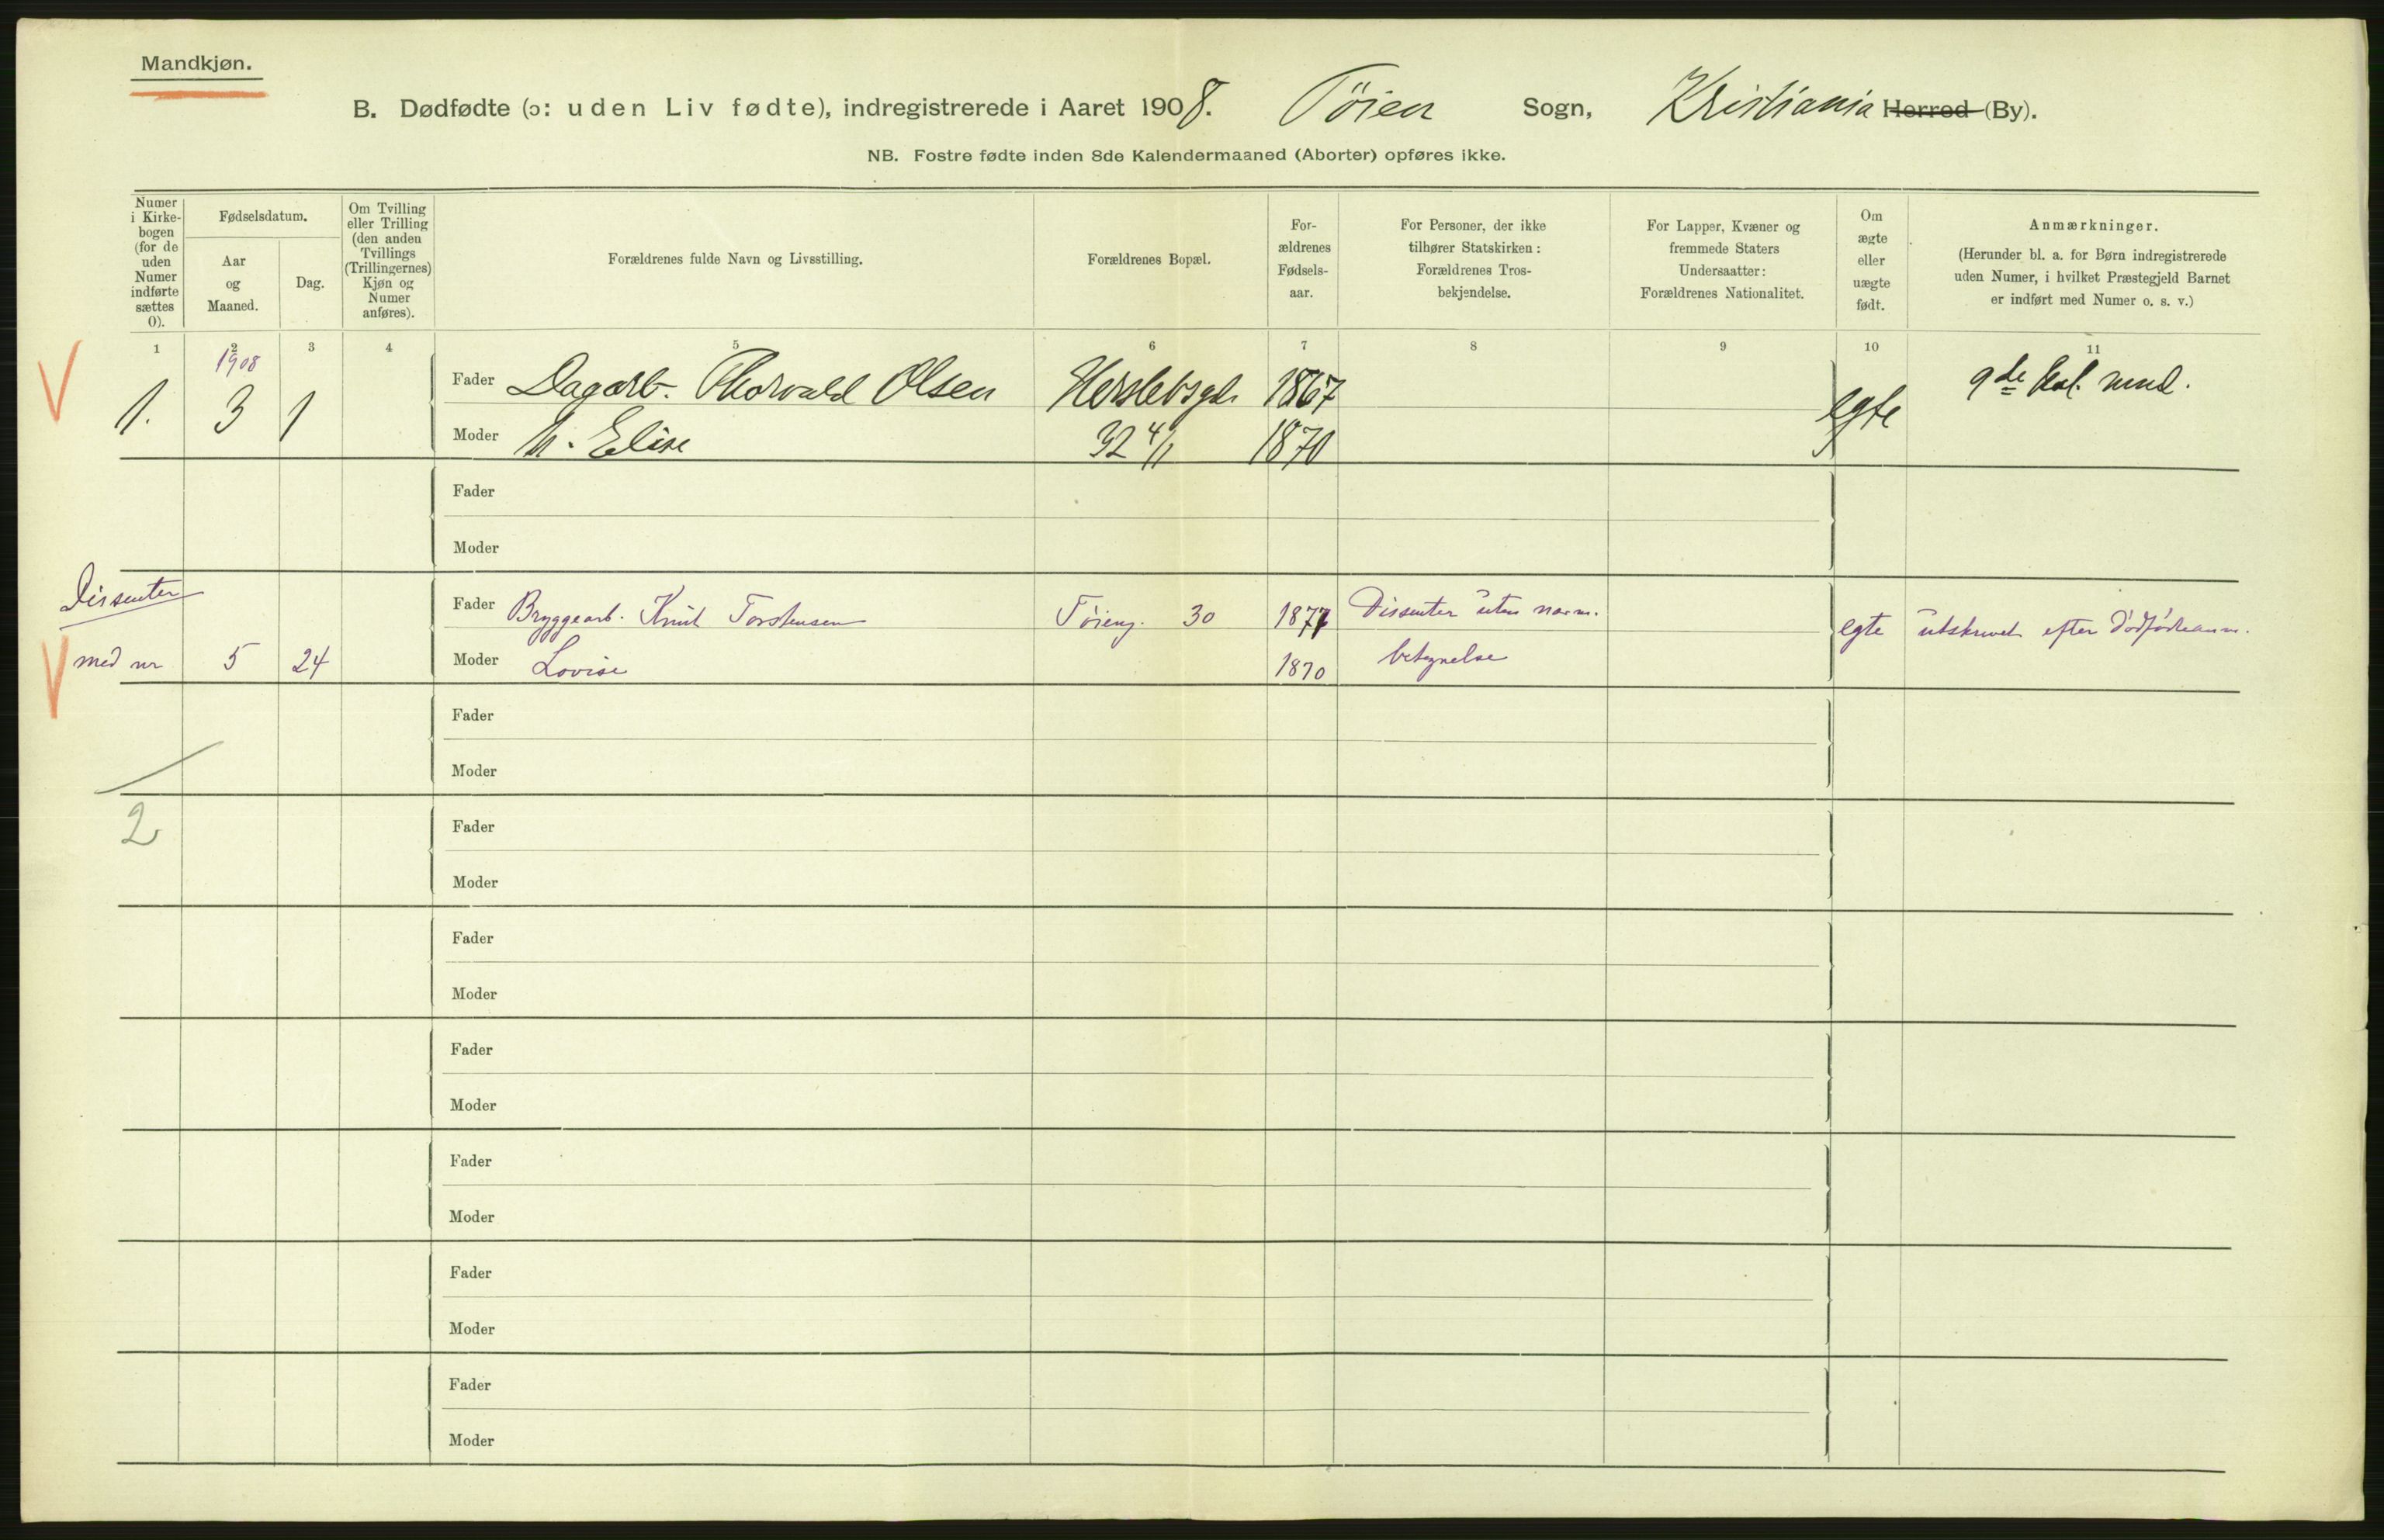 Mandkjøn.
B. Dødfødte (ɔ: uden Liv fødte), indregistrerede i Aaret 1908. Tøien Sogn, Kristiania Herred (By).
NB. Fostre fødte inden 8de Kalendermaaned (Aborter) opføres ikke.
Numer i Kirkebogen (for de uden Numer indførte sættes 0).
Fødselsdatum.
Aar og Maaned.
Dag.
Om Tvilling eller Trilling (den anden Tvillings (Trillingernes) Kjøn og Numer anføres).
Forældrenes fulde Navn og Livsstilling.
Forældrenes Bopæl.
Forældrenes Fødselsaar.
For Personer, der ikke tilhører Statskirken: Forældrenes Trosbekjendelse.
For Lapper, Kvæner og fremmede Staters Undersaatter: Forældrenes Nationalitet.
Om ægte eller uægte født.
Anmærkninger.
(Herunder bl. a. for Børn indregistrerede uden Numer, i hvilket Præstegjeld Barnet er indført med Numer o. s. v.)
1 2 3 4 5 6 7 8 9 10 11
1908
1. 3 1
Fader Dagarb. Thorvald Olsen Herslebsgd. 1867
Moder h. Elise 32 4/1 1870
egte 9de kal. mnd.
Fader
Moder
Dissenter
med nr 5 24
Fader Bryggearb. Knut Torstensen Tøieng. 30 1877 Dissenter uten nærm.
Moder Lovise 1870 betegnelse
egte utskrevet efter dødfødteanm.
Fader
Moder
2
Fader
Moder
Fader
Moder
Fader
Moder
Fader
Moder
Fader
Moder
Fader
Moder